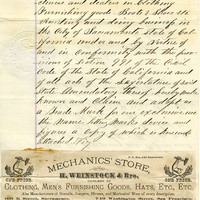 times and dealers in Clothing
Furnishing goods Boots & Shoes &c
Residing and doing business in
the City of Sacramento State of Cal
ifornia under and by Virtue of
and in Conformity with the pro
visions of Section 991 of the Civil
Code of the State of California and
of an act of the Legislature of said
State Amendatory thereof hereby make
known and Claim and adopt, as
a Trade Mark for our exclusive use
the Name, Key, Marks, Device and
figures a Copy of which is hereunto
Attached Viz:
MECHANICS' STORE,
H. WEINSTOCK & Bro.
DEALERS IN
CLOTHING, MEN'S FURNISHING GOODS, HATS, ETC., ETC.
ONE PRICE STORE.
ONE PRICE STORE.